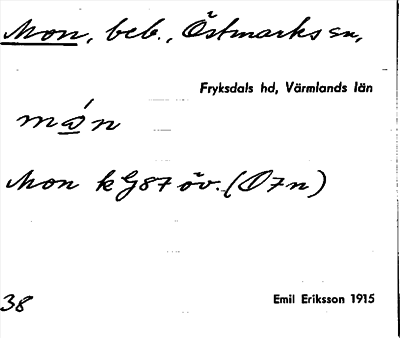 Mon, beb., Östmarks sn,
Fryksdals hd, Värmlands län
mån
Mon k G87 öv. (O7n)
38
Emil Eriksson 1915